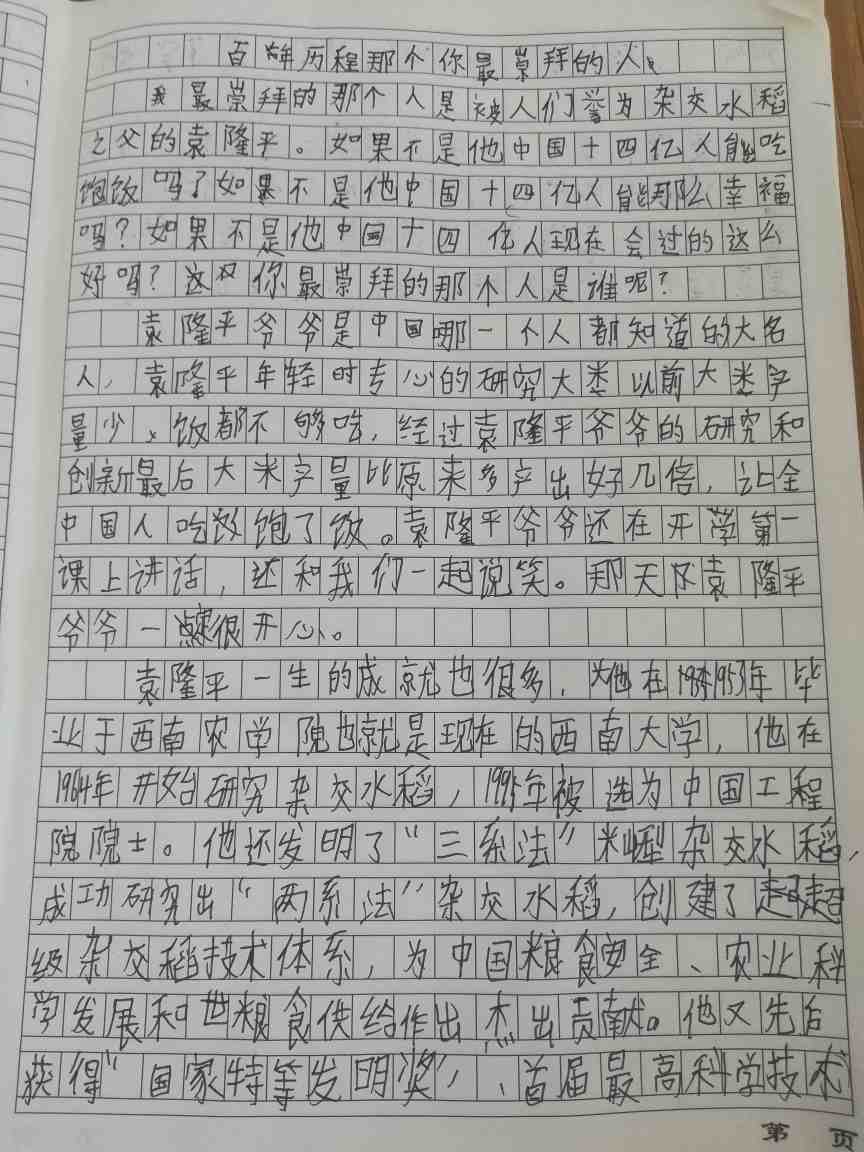 百年历程那个你最崇拜的人
我最崇拜的那个人是被人们誉为杂交水稻
之父的袁隆平。如果不是他中国十四亿人能吃
饱饭吗？如果不是他中国十四亿人能那么幸福
吗？如果不是他中国十四亿人现在会过的这么
好吗？这次你最崇拜的那个人是谁呢？
袁隆平爷爷是中国哪一个人都知道的大名
人，袁隆平年轻时专心的研究大类以前大类字
量少、饭都不够吃，经过袁隆平爷爷的研究和
创新最后大米字量比原来多产出好几倍，让全
中国人吃饭饱了饭。袁隆平爷爷还在开学第一
课上讲话，还和我们一起说笑。那天怀袁隆平
爷爷一定很开心。
袁隆平一生的成就也很多，他在1953年毕
业于西南农学院也就是现在的西南大学，他在
1964年开始研究杂交水稻，1995年被选为中国工程
院院士。他还发明了“三系法”籼型杂交水稻，
成功研究出“两系法”杂交水稻，创建了超
级杂交稻技术体系，为中国粮食安全、农业科
学发展和世粮食供给作出杰出贡献。他又先后
获得“国家特等发明奖”、首届最高科学技术
第 页